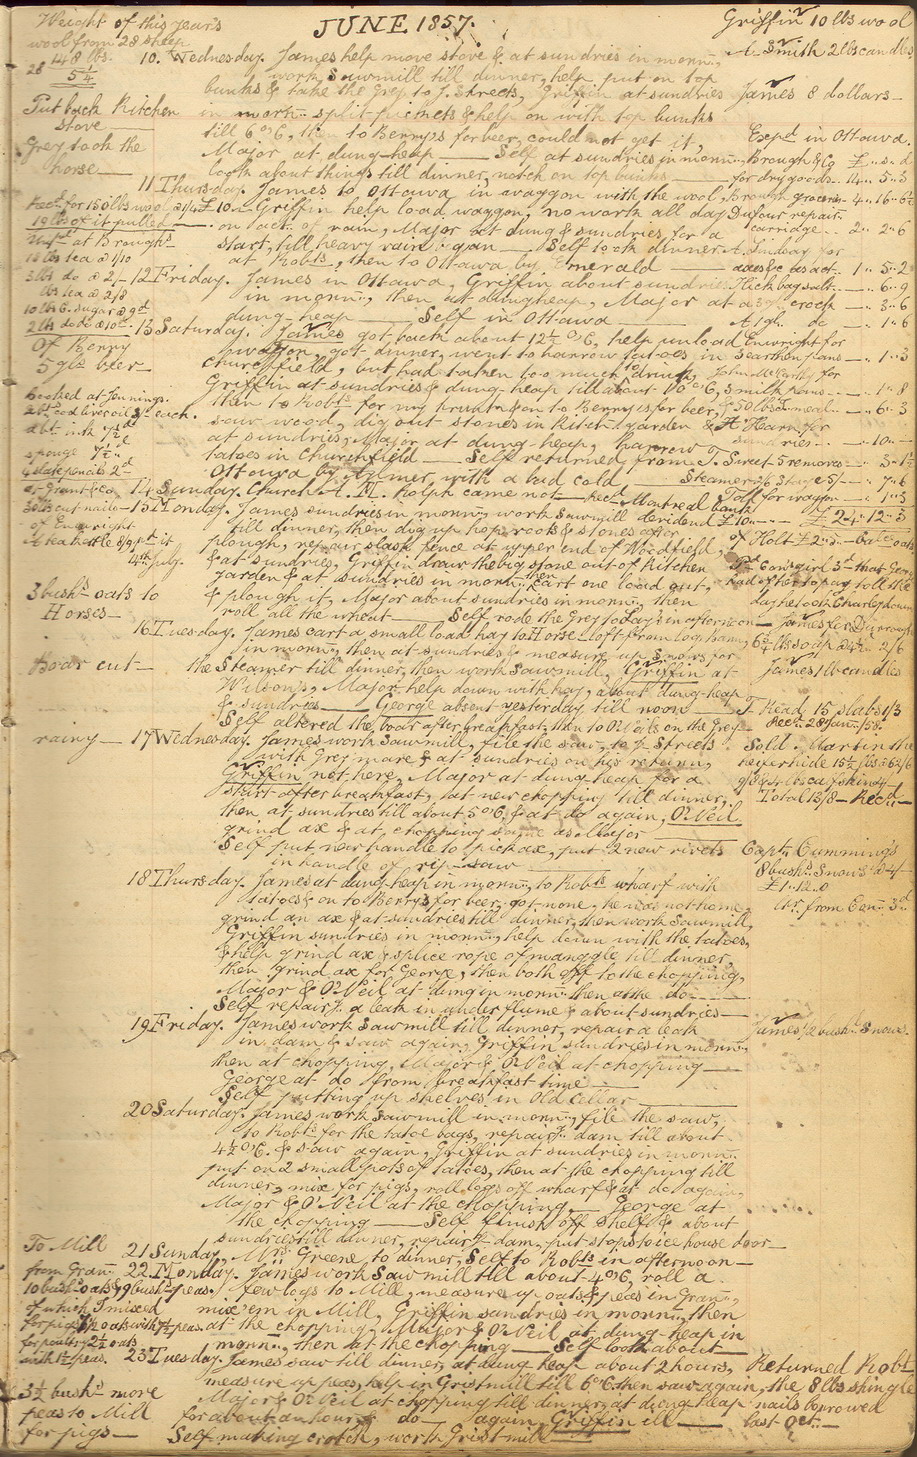 JUNE 1857.
Weight of this years
wool from 28 sheep
148 lbs.
28
5 1/4
Put back Kitchen
Stove
Grey took the
horse
19 lbs of it pulled
at Broughs
lbs tea @ 1/10
3 lbs do @ 2/-
lbs tea @ 2/8
10 lbs G. sugar @ 9d
2 lbs do do @ 10d
Of Berry
5 glns beer
Booked at Jennings.
of Enwright
4th July.
3 bushs oats to
Horses
Boar cut
rainy
To Mill
from Gran:
10 bushs oats & 9 bushs peas.
of which I mixed
for pigs 7 1/2 oats with 7 1/2 peas.
for poultry 2 1/2 oats
with 1 1/2 peas.
3 1/2 bushs more
peas to Mill
for pigs
10. Wednesday. James help move stove & at sundries in morn:,
work Sawmill till dinner, help put on top
bunks & take the Grey to J. Streets, Griffin at sundries
in morn: split pickets & help on with top bunks
till 6 o'C, then to Berrys for beer, could not get it,
Major at dung heap — Self at sundries in morn:,
look about things till dinner, notch on top bunks
11 Thursday. James to Ottawa in waggon with the wool,
Griffin help load waggon, no work all day
on act. of rain, Major at dung & sundries for a
start, till heavy rain began — Self took dinner
at Robts, then to Ottawa by Emerald
12 Friday. James in Ottawa, Griffin about sundries
in morn:, then at dungheap, Major at
dung-heap — Self in Ottawa
13 Saturday. James got back about 12 1/2 o'C, help unload
waggon, got dinner, went to harrow tatoes in
Churchfield, but had taken too much drink,
Griffin at sundries & dung heap till about 10 o'C,
then to Robts for my trunk & on to Berrys for beer,
saw wood, dig out stones in Kitchn garden &
at sundries, Major at dung-heap, harrow
tatoes in Churchfield — Self returned from
Ottawa by Aylmer, with a bad cold
14 Sunday. Church A. M. Ralph came not
15 Monday. James sundries in morn:, work Sawmill
till dinner, then dig up hop roots & stones after
plough, repair slash fence at upper end of Woodfield,
& at sundries, Griffin draw the big stone out of Kitchen
garden & at sundries in morn: then cart one load out,
& plough it, Major about sundries in morn:, then
roll all the wheat — Self rode the Grey to Lays in afternoon
16 Tuesday. James cart a small load hay to Horse loft from log Barn
in morn:, then at sundries & measure up Snows for
the Steamer till dinner, then work Sawmill, Griffin at
Wilsons, Major help down with hay, about dung-heap
& sundries — George absent yesterday till noon
Self altered the boar after breakfast, then to O'Neils on the Grey
17 Wednesday. James work Sawmill, file the saw, to J. Streets
with Grey mare & at sundries on his return,
Griffin not here, Major at dung heap for a
start after breakfast, at new chopping till dinner,
then at sundries till about 5 o'C. & at do again, O'Neil
grind ax & at chopping same as Major
Self put new handle to pick ax, put 2 new rivets
in handle of rip-saw
18 Thursday. James at dung-heap in morn:, to Robts wharf with
tatoes & on to Berrys for beer, got none, he was not home,
grind an ax & at sundries till dinner, then work Sawmill,
Griffin sundries in morn:, help down with the tatoes,
& help grind ax & splice rope of manggle till dinner
then grind ax for George, then both off to the chopping,
Major & O'Neil at dung in morn: then at the do
Self repairg. a leak in under flume & about sundries
19 Friday. James work Sawmill till dinner, repair a leak
in dam & saw again, Griffin sundries in morn:,
then at chopping, Major & O'Neil at chopping
George at do from breakfast time
Self putting up shelves in Old Cellar
20 Saturday. James work Sawmill in morn:, file the saw,
to Robts for the tatoe bags, repairg. dam till about
4 1/2 o'C. & saw again, Griffin at sundries in morn:
put on 2 small pots of tatoes, then at the chopping till
dinner, mix for pigs, roll logs off wharf & at do again,
Major & O'Neil at the chopping — George at
the chopping — Self finish off shelf & about
sundries till dinner, repairg. dam, put stops to ice house door
21 Sunday, Mrs. Greene to dinner, Self to Robts in afternoon
22 Monday. James work Sawmill till about 4 o'C, roll a
few logs to Mill, measure up oats & peas in Gran:,
mix 'em in Mill, Griffin sundries in morn:, then
at the chopping, Major & O'Neil at dung-heap in
morn:, then at the chopping — Self look about
23 Tuesday. James saw till dinner, at dung heap about 2 hours,
measure up peas, help in Gristmill till 6 o'C. then saw again,
Major & O'Neil at chopping till dinner, at dung heap
for about an hour & do again, Griffin ill
Self making crotch, work Gristmill
Griffin 10 lbs wool
A. Smith 2 lbs candles
James 8 dollars
Expd in Ottawa.
Brough & Co £ .. s .. d
for dry goods 14 .. 5 .. 3
Brough groceries 4 .. 16 .. 6 1/2
Dufour repairg.
carridge 2 .. 2 .. 6
A. Lindsay for
axes &c as act. 1 .. 5 .. 2
Thick bag salt — 6 .. 9
a 3 gl. crock — 3 .. 6
A 1 gl. do — 1 .. 6
Enwright for
3 earthen pans — 1 .. 3
John McCarthy for
3 milk pans — 1 .. 8
50 lbs Ot. meal — 6 .. 3
A Hearn for
sundries — 10
T. Sweet 5 removes — 3 .. 1 1/2
Toll for waggon — 1 .. 3
£ 24 .. 12 .. 3
Recd Montreal Bank
dividend £ 10
of Holt £ 2
day he took Charley down
James for Durrough
6 3/4 lbs soap @ 4 1/2 2/6
James 1 lb candles
T. Read 15 slabs 1/3
Recd. 28 Jan: /58.
Sold Martin the
heifer hide 15 1/2 lbs @ 6d
Total 13/8 — Recd.
Captn. Cummings
8 bushs. Snows @ 4/-
£ 1 .. 12 .. 0
James 1/2 bushl Snows
Returned Robt
the 8 lbs shingle
nails borrowed
last Oct.